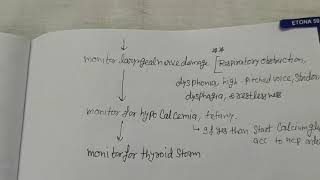 ETONA 50
**
monitor laryngeal nerve damage [Respiratory obstruction,
dysphonia, high-pitched voice, Stridor,
dysphagia, & restlessness
monitor for hypo Calcemia, tetany
↳ If yes than Start Calcium glu
acc to HCP order
monitor for thyroid Storm